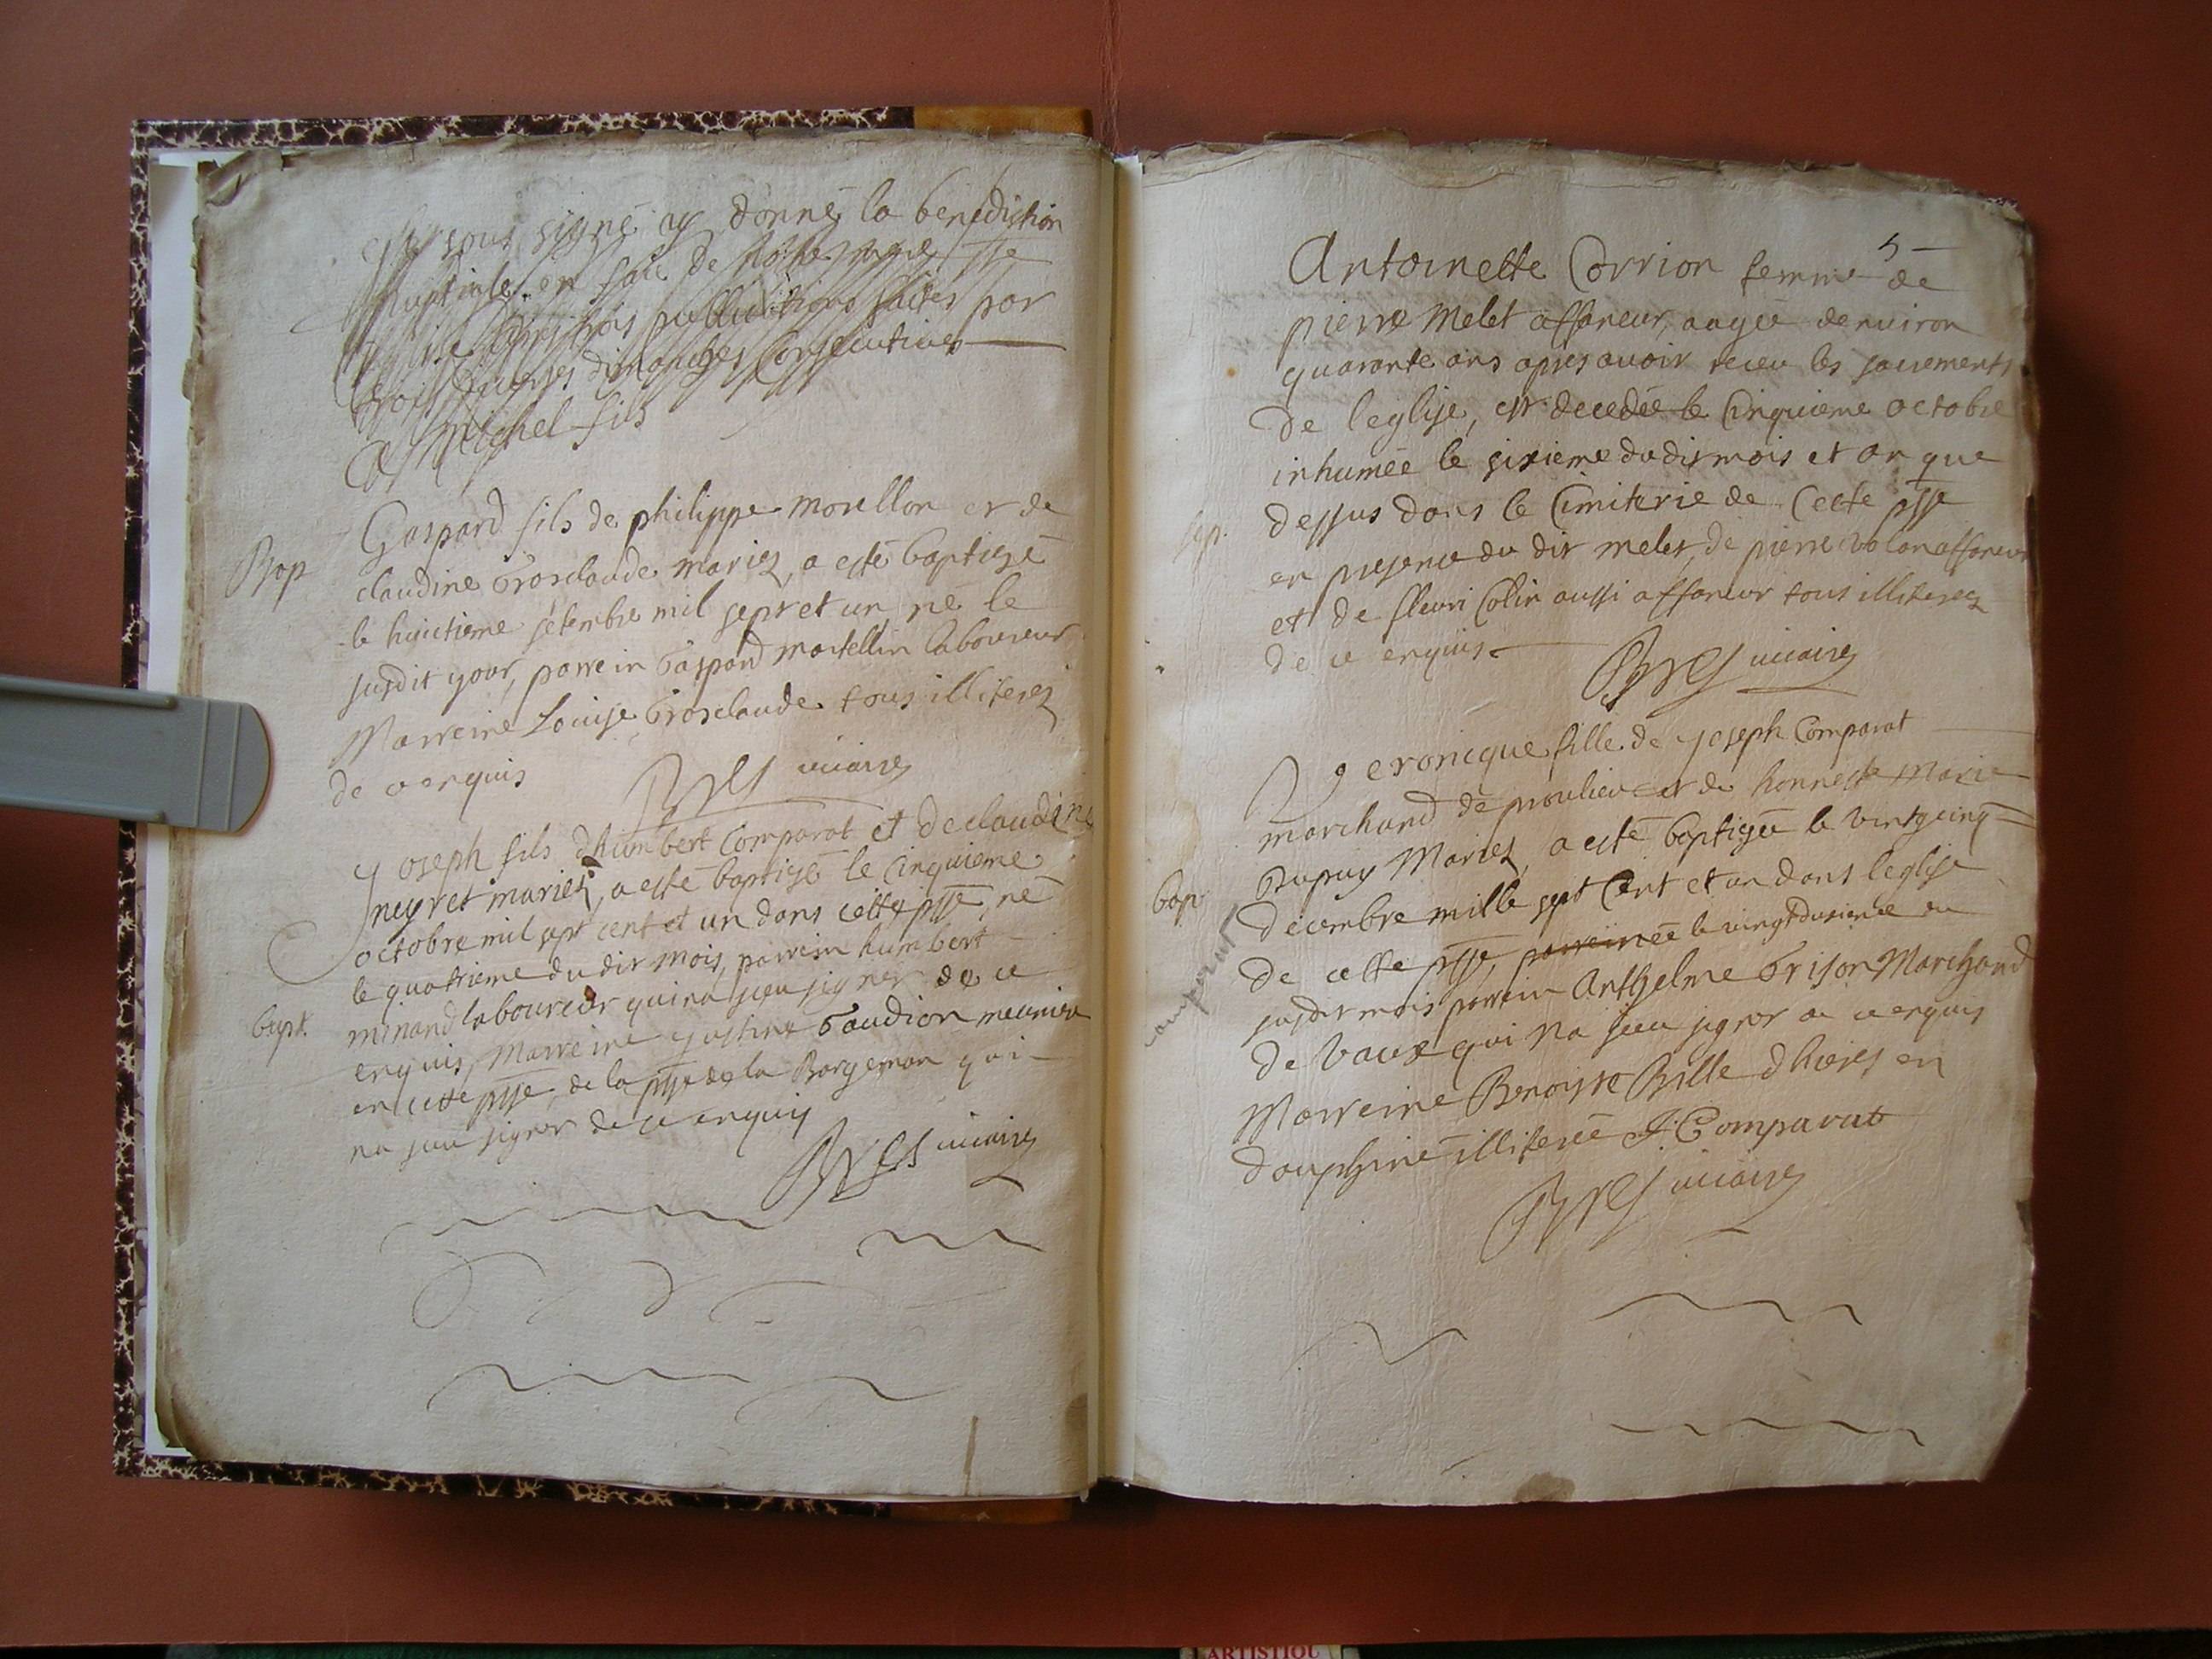 sous signé ay donné la benediction
nuptiale en face de nostre
apres trois publications faites par
trois divers dimanches consecutives
Michel fils
Bap
Gaspard fils de philippe morellon et de
claudine Grosclaude mariez, a esté baptizé
le huictieme setembre mil sept et un né le
susdit your, parrein Gaspard martellin laboureur
Marreine Louise Grosclaude tous illiterez
de ce enquis
Bres vicaire
Yoseph fils d'humbert Comparat et de claudine
neyret mariez, a esté baptisé le cinquieme
octobre mil sept cent et un dans cette psse, né
le quatrieme du dit mois, parrein humbert
bapt.
minand laboureur qui na sceu signer de ce
enquis, Marreine justine Gaudion meuniere
en cette psse, de la psse de la Bargeman qui
na sceu signer de ce enquis
Bres vicaire
5
Antoinette Corrion femme de
pierre Melet affaneur, aagée denuiron
quarante ans apres avoir receu les sacrements
de leglise, est decedée le Cinquieme octobre
inhumée le sixieme du dit mois et an que
dessus dans le Cimiterie de Cette psse
Sep.
en presence du dit melet, de pierre volan affaneur
et de fleuri Colin aussi affaneur tous illiterez
de ce enquis
Bres vicaire
Veronicque fille de yoseph Comparat
marchand de proulieu et de honneste Marie
Dupuy Mariez, a esté baptisée le vintgcinq
bap
decembre mille sept Cent et un dans leglise
de cette psse, parreinée le vingtdusieme du
comparat
susdit mois parrein Anthelme Grison Marchand
de Vaux qui na sceu signer de ce enquis
Marreine Benoiste Bille dhieres en
dauphiné illiterée J. Comparat
Bres vicaire
ARTISTIQU